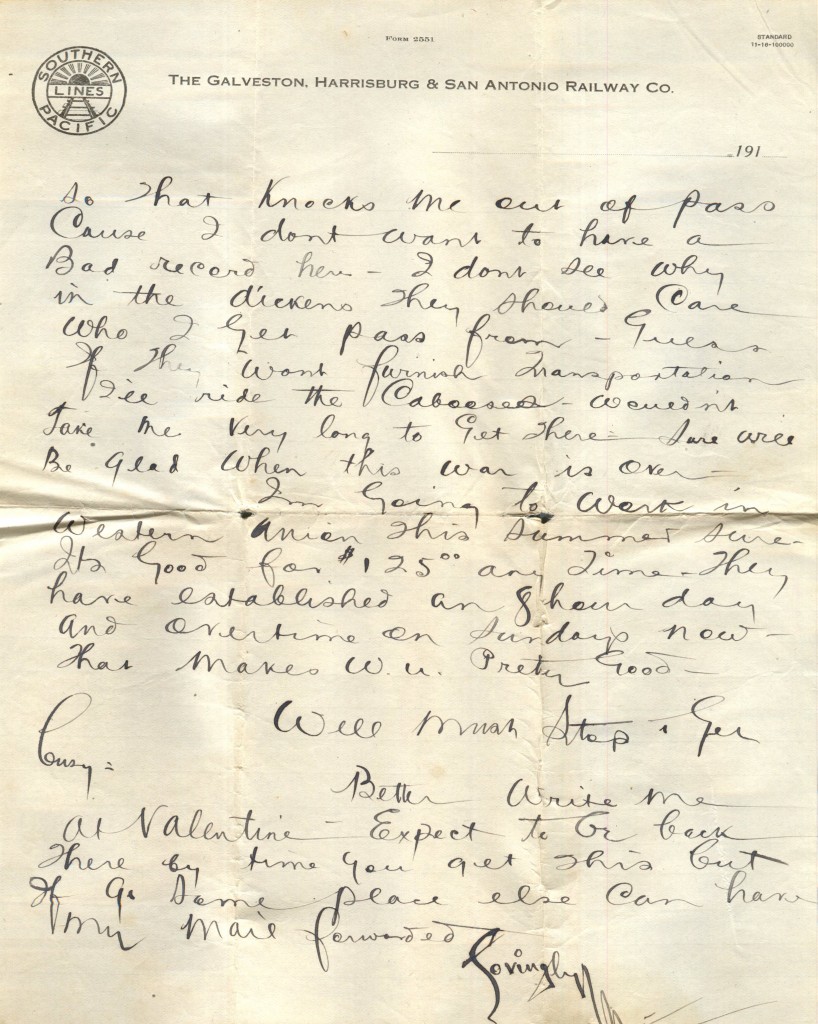 Form 2551
STANDARD
11-16-100000
SOUTHERN
LINES
PACIFIC
THE GALVESTON, HARRISBURG & SAN ANTONIO RAILWAY CO.
191
So That Knocks Me out of pass
Cause I dont want to have a
Bad record here - I dont see why
in the dickens They should Care
Who I Get pass from - Guess
If They Wont furnish Transportation
I'll ride the Cabooses - Wouldn't
Take Me Very long to Get There = Sure will
Be Glad When this war is over -
I'm Going to Work in
Western Union This Summer Sure -
Its Good for $125.00 any Time - They
have established an 8 hour day
And overtime on Sundays now -
That Makes W.U. Prety Good -
Well Must Stop & Get
Busy =
Better Write Me
At Valentine - Expect to be back
There by time you get This but
If Go Some place else Can have
My Mail forwarded
Lovingly